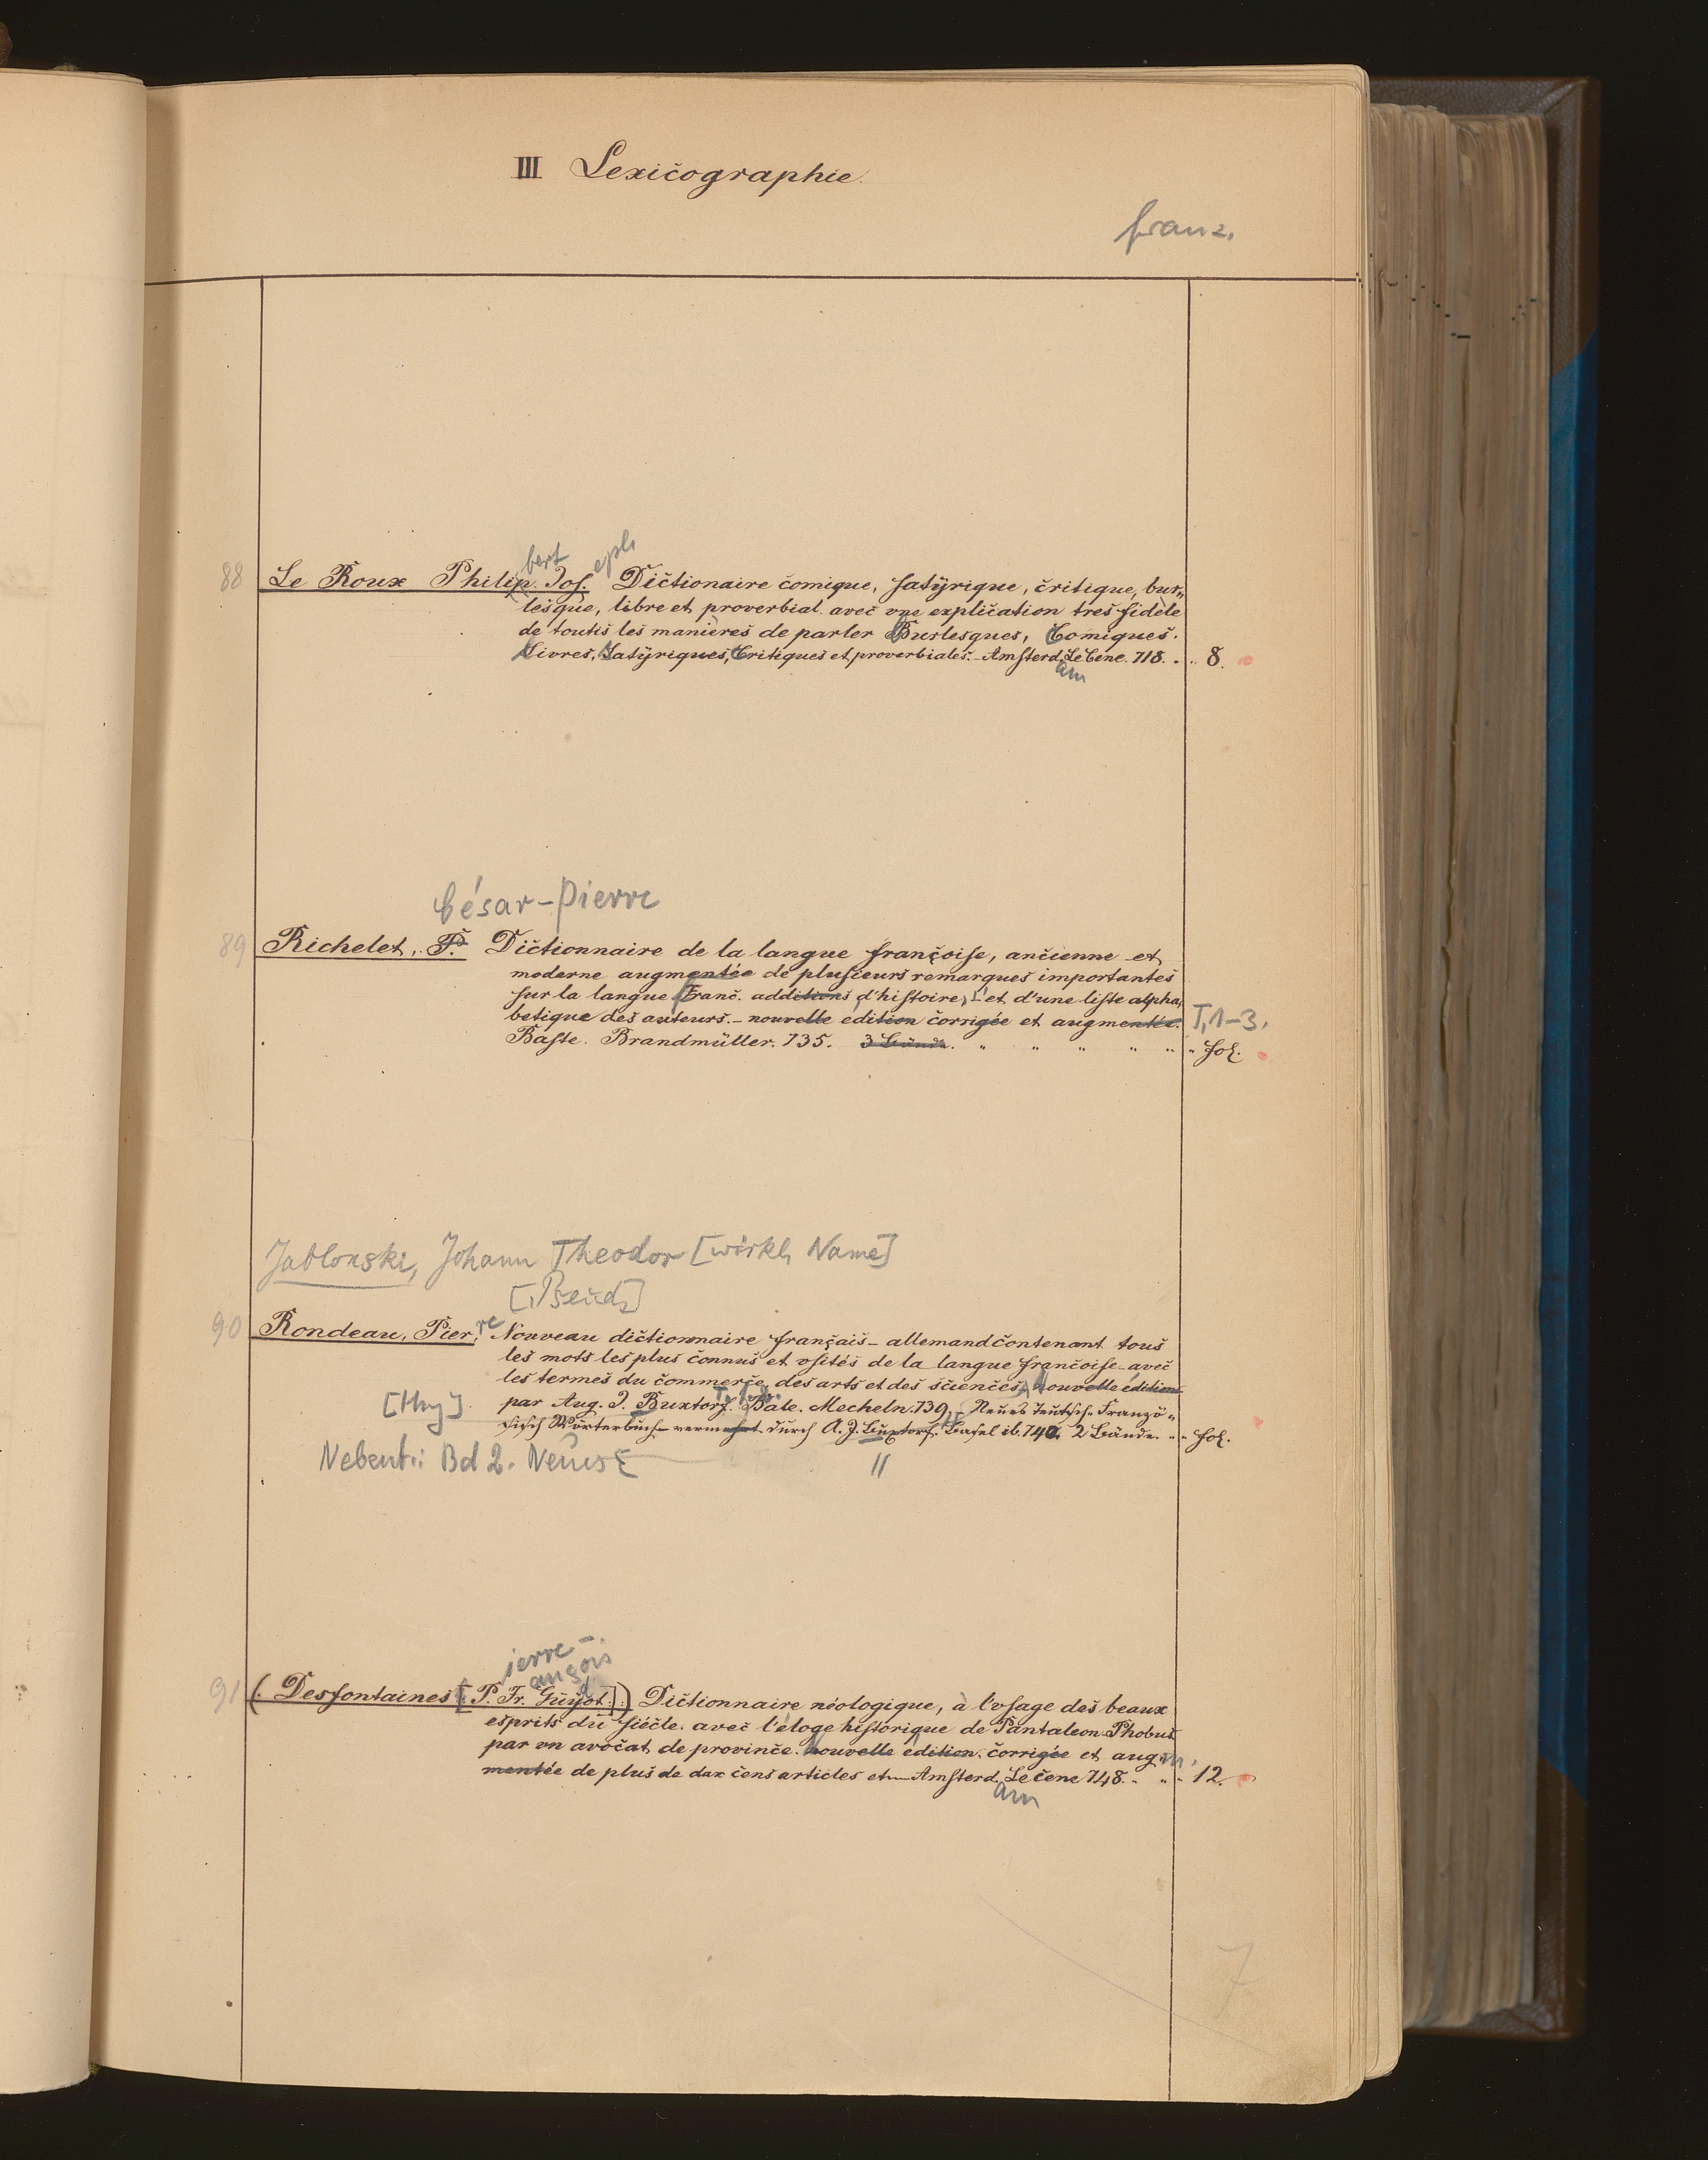 III Lexicographie.
franz.
bert eph
88 Le Roux Philip. Jos. Dictionaire comique, satÿrique, critique, bur„
lesque, libre et proverbial. avec vne explication tres fidèle
de toutis les manières de parler Burlesques, Comiques.
Livres, Satÿriques, Critiques et proverbiales. - Amsterd. Le Cene. 718. . . 8.
am
César-Pierre
89 Richelet, P. Dictionnaire de la langue françoise, ancienne et
moderne augmentée de plusieurs remarques importantes
sur la langue Franc. additions d'histoire, et d'une liste alpha„
betique des auteurs. - nouvelle edition corrigée et augmentée. T, 1-3.
Basle. Brandmüller. 735. 3 Bände. " " " " " " fol.
Jablonski, Johann Theodor [wirkl. Name]
[Pseud.]
90 Rondeau, Pier. re Nouveau dictionnaire français - allemand contenant tous
les mots les plus connus et vsités de la langue françoise avec
les termes du commerce, des arts et des sciences, Nouvelle édition
[Hrg]. par Aug. J. Buxtorf. Bale. Mecheln. 739. Neues Teutsch-Franzö„
sisch Wörterbuch - vermehrt durch A. J. Buxtorf. Basel ib. 740. 2 Bände. " " fol.
Nebent.: Bd 2. Neues
"
ierre -
ançois
d
91 (. Desfontaines [P. Fr. Güÿot.].) Dictionnaire néologique, à l'vsage des beaux
esprits du siécle. avec l'éloge historique de Pantaleon-Phobus
par vn avocat de province. nouvelle edition. corrigée et aug„ m.
mentée de plus de dax cens articles et - Amsterd. Le cene 748. " " " 12.
am
7